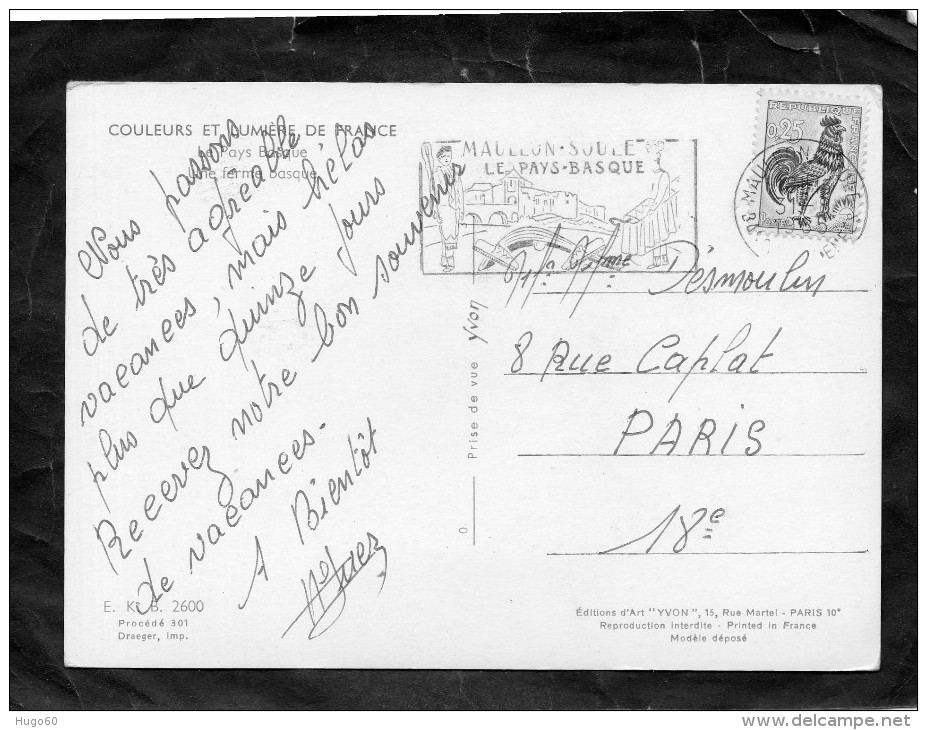 COULEURS ET LUMIÈRE DE FRANCE
Le Pays Basque
Une ferme basque
Nous passons
de très agréable
vacances, mais hélas
plus que quinze jours
Recevez notre bon souvenir
de vacances.
A Bientôt
E. K. B. 2600
Procédé 301
Draeger, imp.
MAULEON-SOULE
LE PAYS-BASQUE
REPUBLIQUE FRANÇAISE
0,25
Prise de vue Yvon
Désmoulin
8 Rue Caplat
PARIS
18e
Éditions d'Art "YVON", 15, Rue Martel - PARIS 10e
Reproduction interdite - Printed in France
Modèle déposé
Hugo60
www.delcampe.net